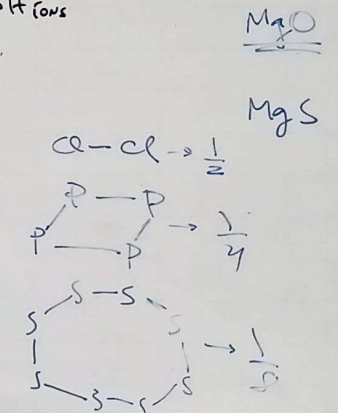 IONS
MgO
MgS
Cl - Cl → 1/2
P - P
P - P → 1/4
S - S
S S
S S → 1/8
S - S